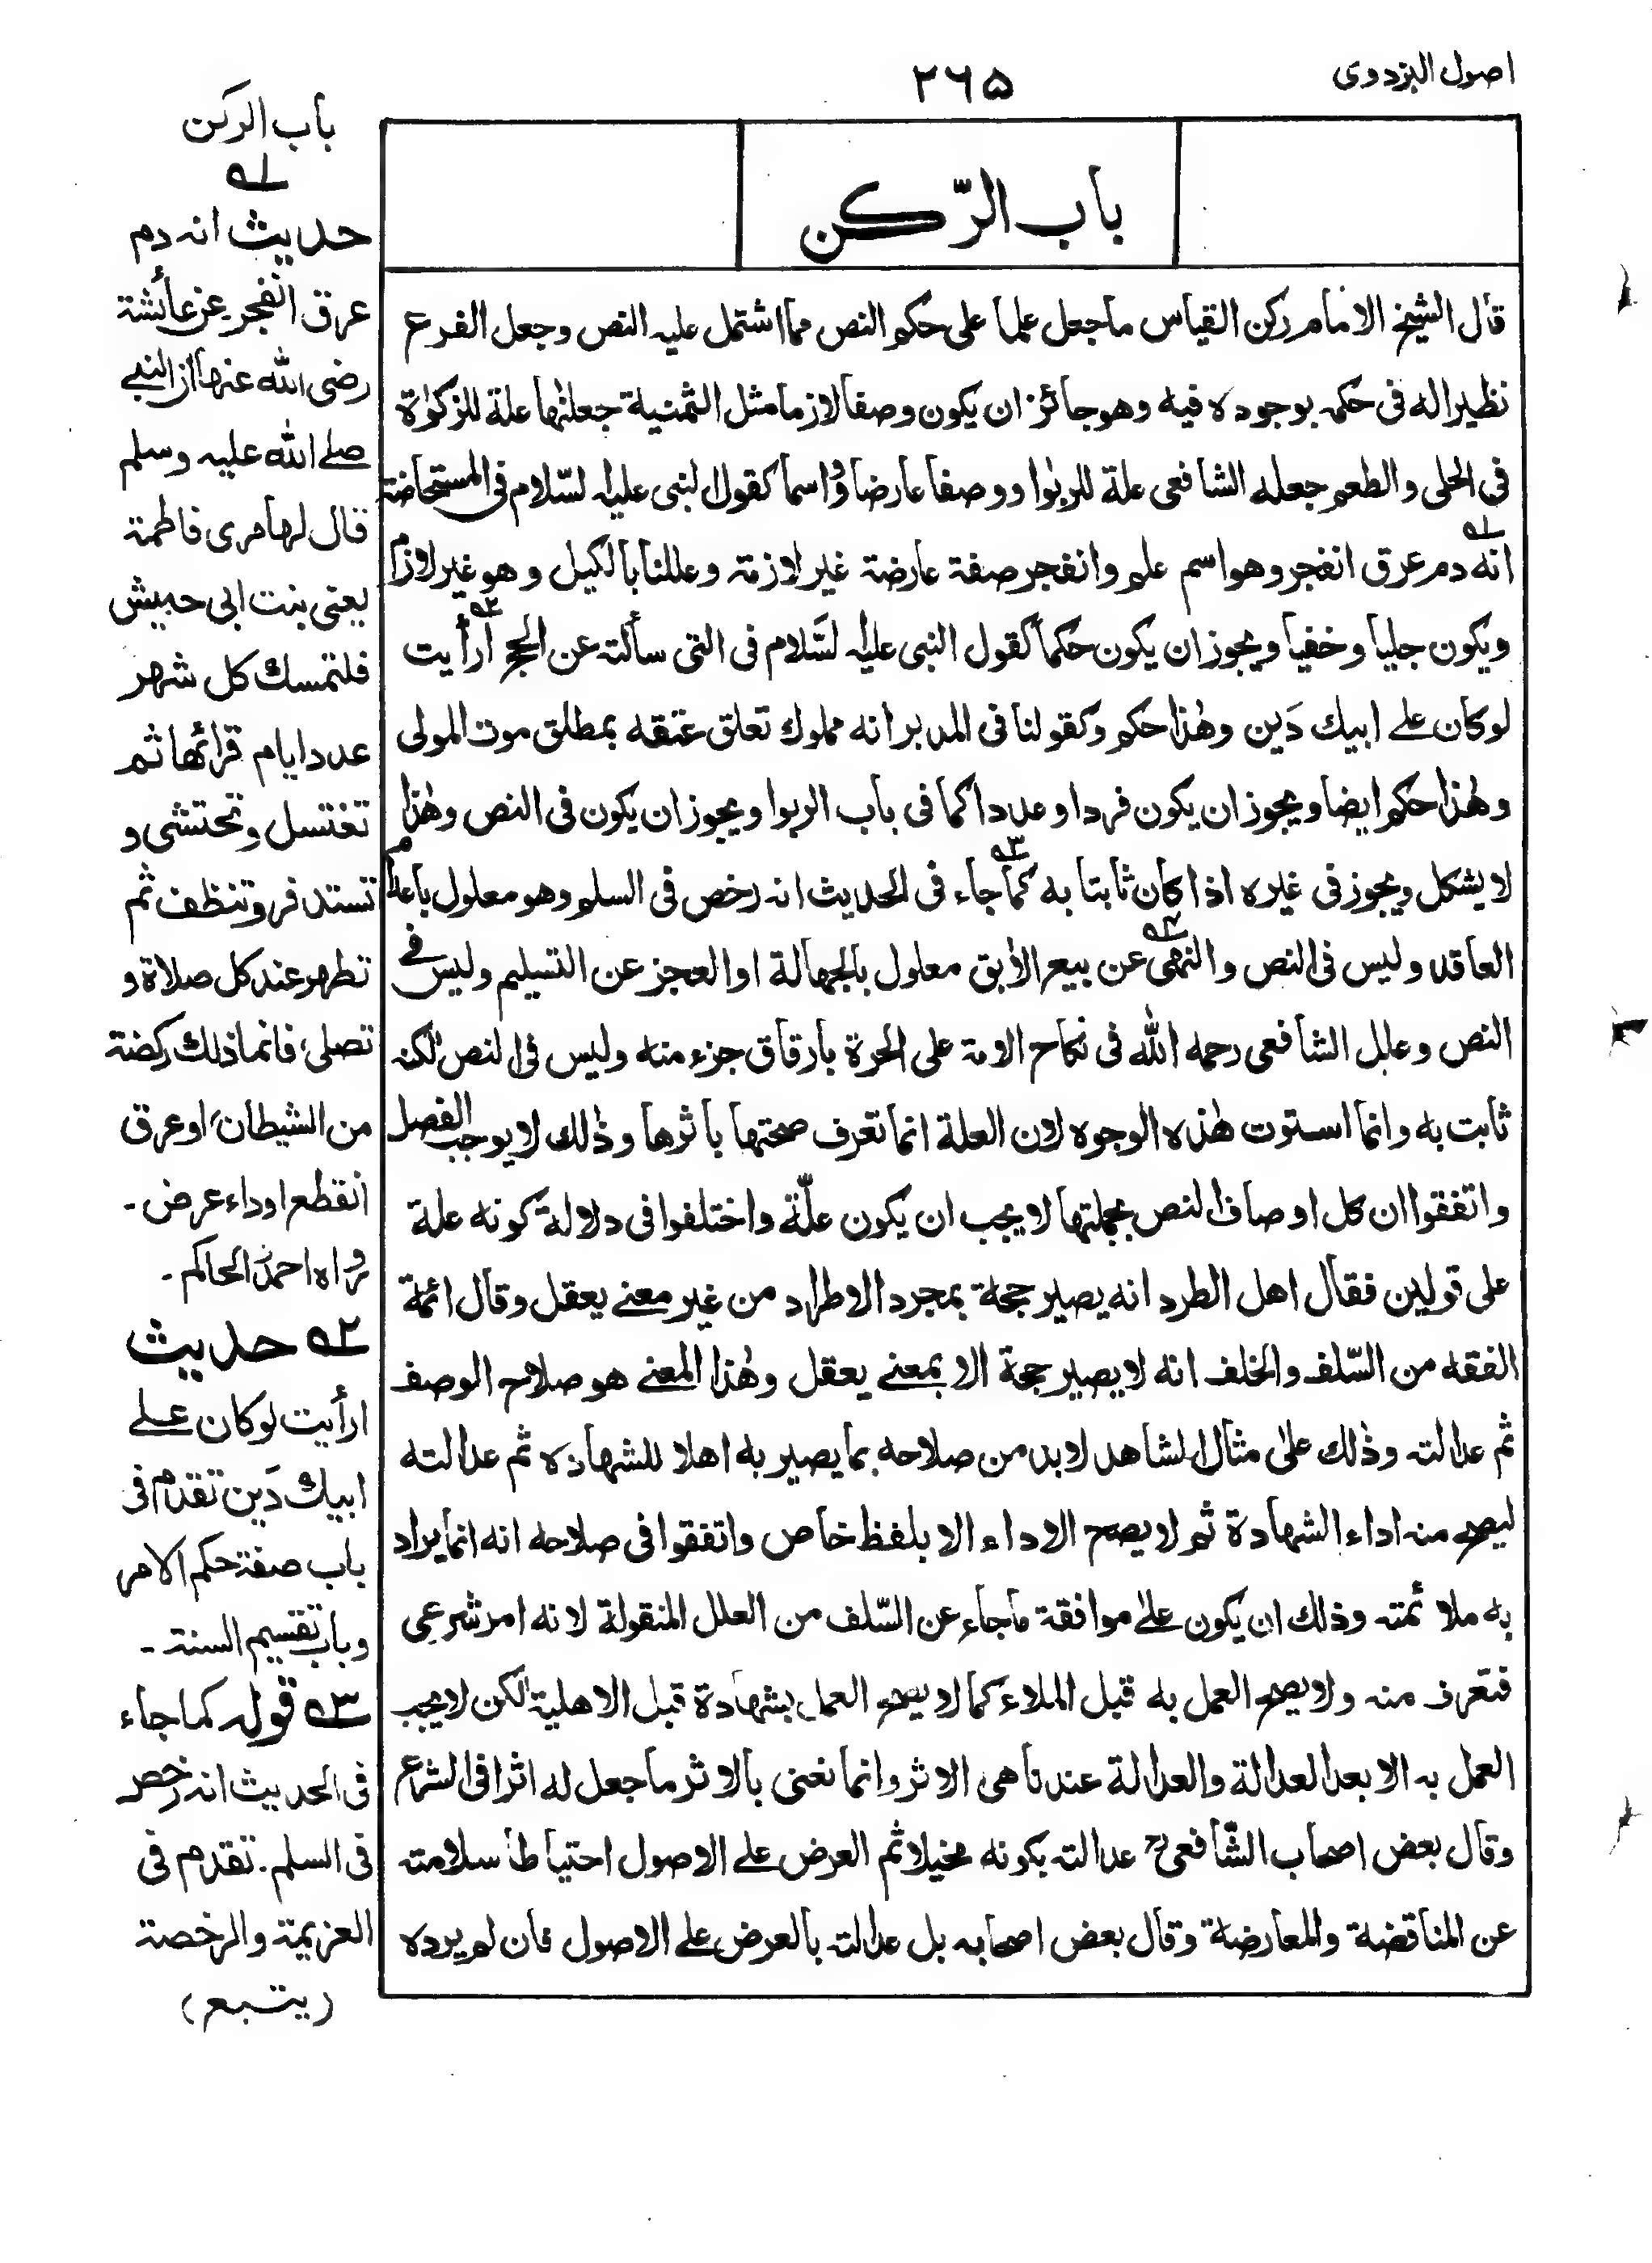 اصول البزدوى
۲۶۵
باب الرّكن
قال الشيخ الامام ركن القياس ماجعل علما على حكم النص مما اشتمل عليه النص وجعل الفرع
نظيرا له فى حكمه بوجوده فيه وهو جائز ان يكون وصفا لازما مثل الثمنية جعلنٰها علة للزكوٰة
فى الحلى والطعم جعله الشافعى علة للربوٰا ووصفا عارضا واسما كقول النبى عليه السّلام فى المستحاضة
انه دم عرق انفجر وهو اسم علم وانفجر صفة عارضة غير لازمة وعللنا بالكيل وهو غير لازم
ويكون جليا وخفيا ويجوز ان يكون حكما كقول النبى عليه السَّلام فى التى سألته عن الحج ارأيت
لو كان علے ابيك دَين وهٰذا حكم وكقولنا فى المدبر انه مملوك تعلق عتقه بمطلق موت المولى
وهٰذا حكم ايضا ويجوز ان يكون فردا وعددا كما فى باب الربوا ويجوز ان يكون فى النص وهٰذا
لا يشكل ويجوز فى غيره اذا كان ثابتا به كما جاء فى الحديث انه رخص فى السلم وهو معلول باعدام
العاقد وليس فى النص والنهى عن بيع الاٰبق معلول بالجهالة او العجز عن التسليم وليس فے
النص وعلل الشافعى رحمه الله فى نكاح الامة على الحرة بارقاق جزء منه وليس فى النص لٰكنه
ثابت به وانما استوت هٰذه الوجوه لان العلة انما تعرف صحتها باثرها وذٰلك لا يوجب الفصل
واتفقوا ان كل اوصاف النص بجملتها لا يجب ان يكون علّة واختلفوا فى دلالة كونه علة
على قولين فقال اهل الطرد انه يصير حجة بمجرد الاطراد من غير معنے يعقل وقال ائمة
الفقه من السّلف والخلف انه لا يصير حجة الا بمعنے يعقل وهٰذا المعنے هو صلاح الوصف
ثم عدالته وذٰلك علىٰ مثال الشاهد لابد من صلاحه بما يصير به اهلا للشهادة ثم عدالته
ليصح منه اداء الشهادة ثم لا يصح الاداء الا بلفظ خاص واتفقوا فى صلاحه انه انما يراد
به ملائمته وذلك ان يكون علےٰ موافقة ماجاء عن السّلف من العلل المنقولة لانه امر شرعى
فتعرف منه ولا يصح العمل به قبل الملاء كما لا يصح العمل بشهادة قبل الاهلية لٰكن لا يجب
العمل به الا بعد العدالة والعدالة عندنا هى الاثر وانما نعنى بالاثر ماجعل له اثرا فى الشرع
وقال بعض اصحاب الشّافعى ؒ عدالته بكونه مخيلا ثم العرض علے الاصول احتياطا سلامته
عن المناقضة والمعارضة وقال بعض اصحابه بل عدالته بالعرض علے الاصول فان لم يرده
باب الركن
۱ه
حديث انه دم
عرق انفجر۔ عن عائشة
رضى الله عنها ان النبے
صلے الله عليه وسلم
قال لها مرى فاطمة
يعنى بنت ابى حبيش
فلتمسك كل شهر
عدد ايام قرائها ثم
تغتسل وتحتشى و
تستذفر وتنظف ثم
تطهر عند كل صلاة و
تصلى، فانما ذلك ركضة
من الشيطان، او عرق
انقطع او داء عرض۔
رواه احمد والحاكم۔
۲ه حديث
ارأيت لو كان علے
ابيك دَين تقدم فى
باب صفة حكم الامر
وباب تقسيم السنة۔
۳ه قوله كما جاء
فى الحديث انه رخص
فى السلم۔ تقدم فى
العزيمة والرخصة
(يتبع)